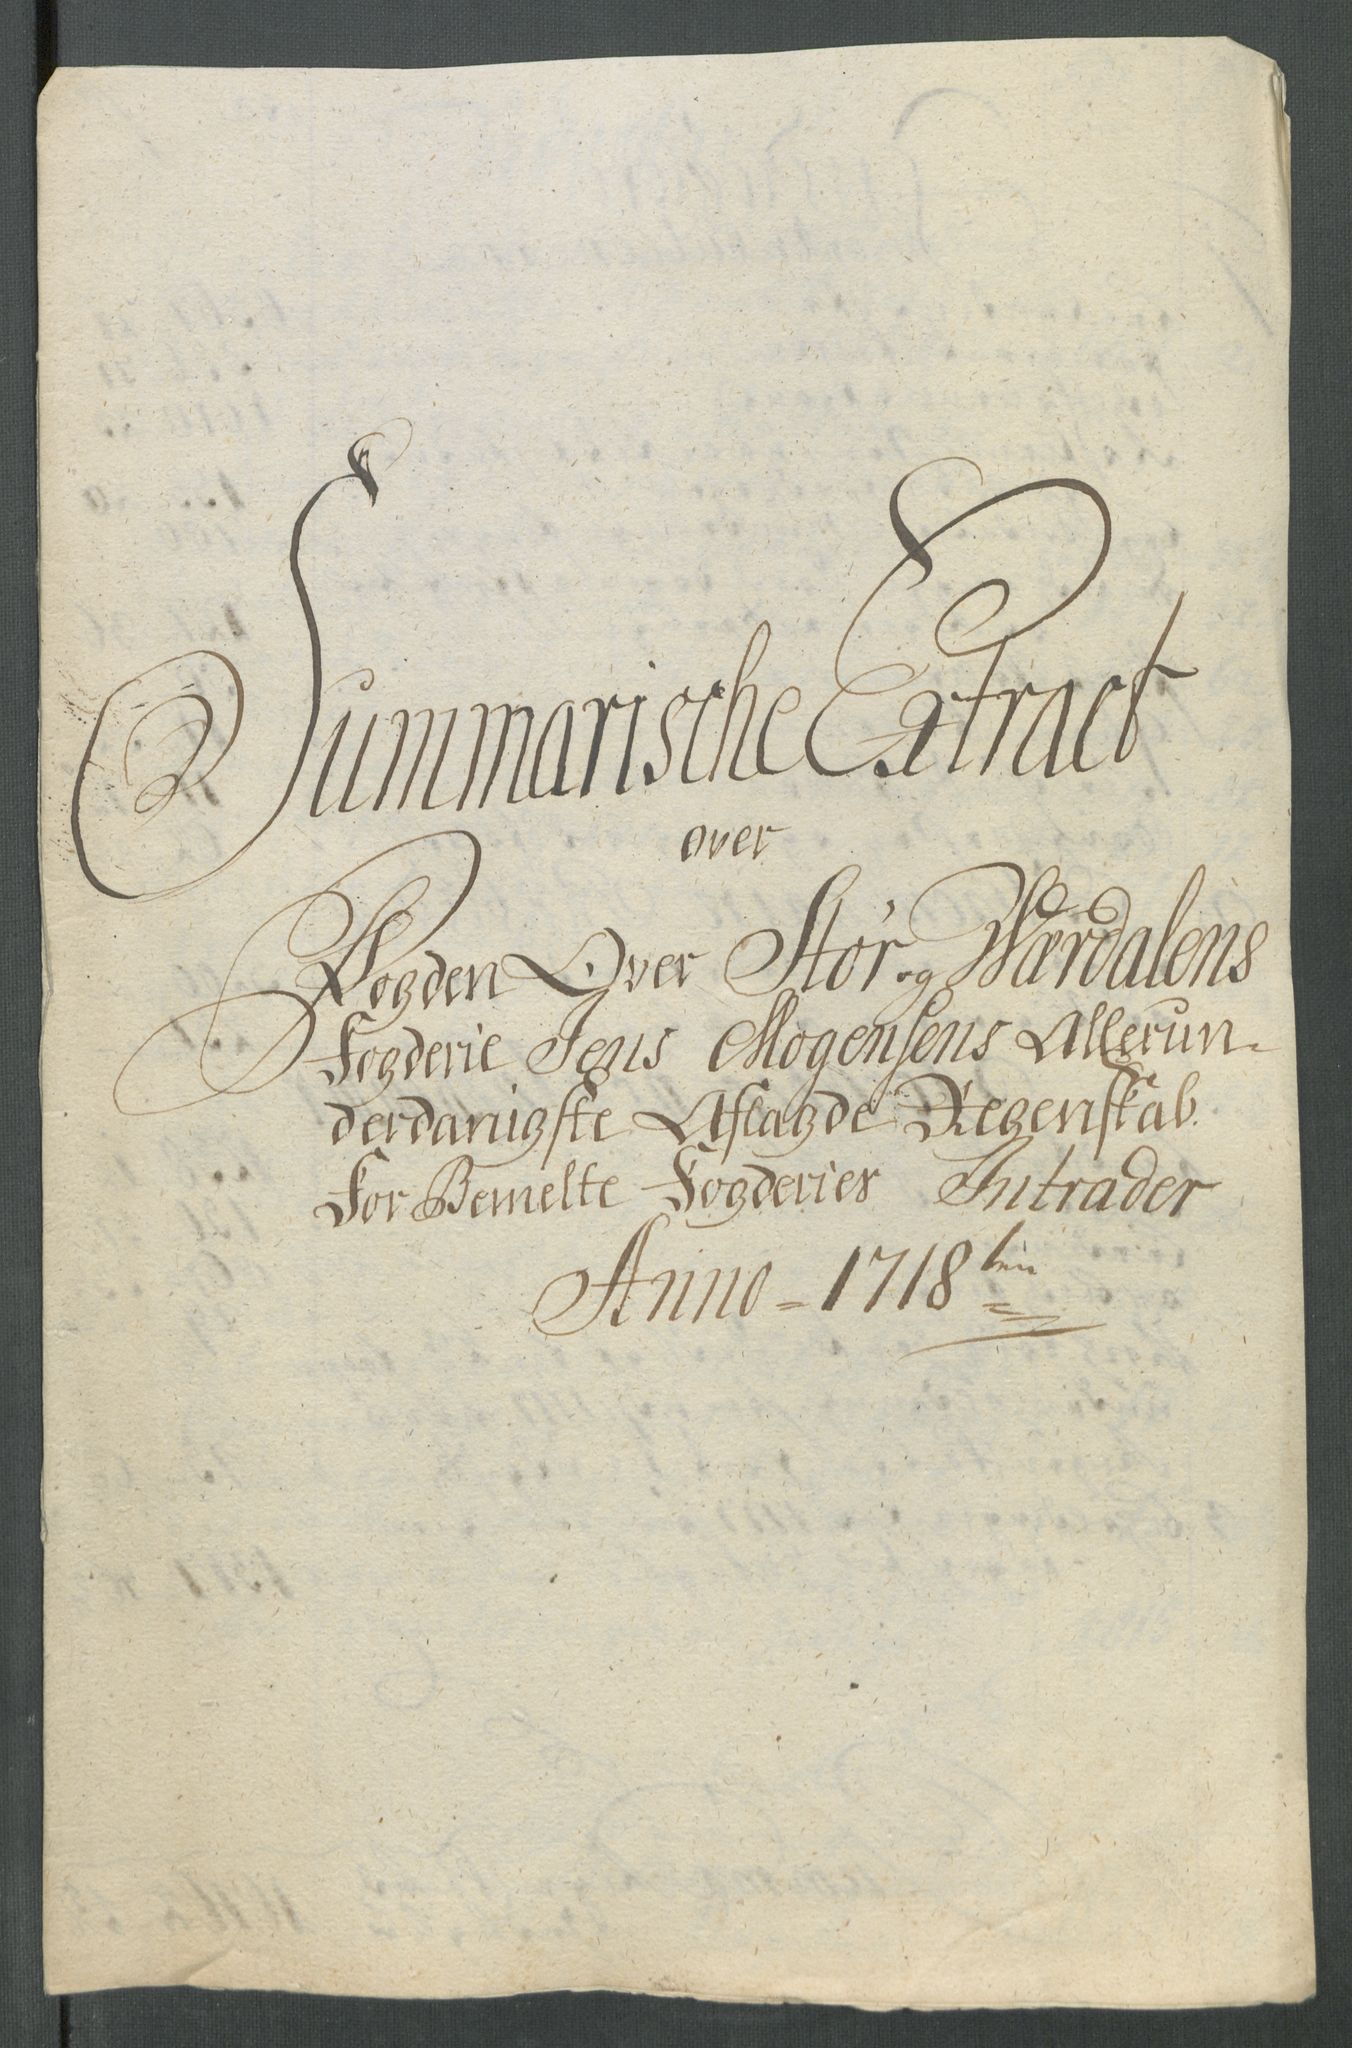 Summarische Extract
over
Fogden Over Stør og Wærdalens
Fogderie Jens Mogensens Allerun-
derdanigste Aflagde Regenskab
For Bemelte Fogderies Intrader
Anno - 1718